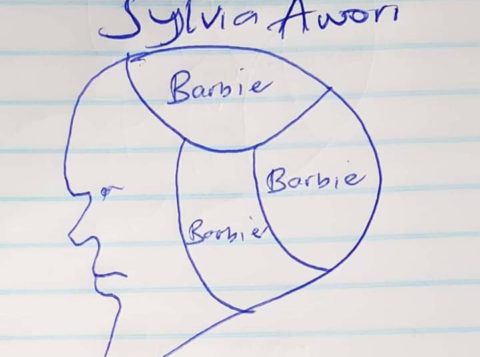 Sylvia Awori
Barbie
Barbie
Barbie